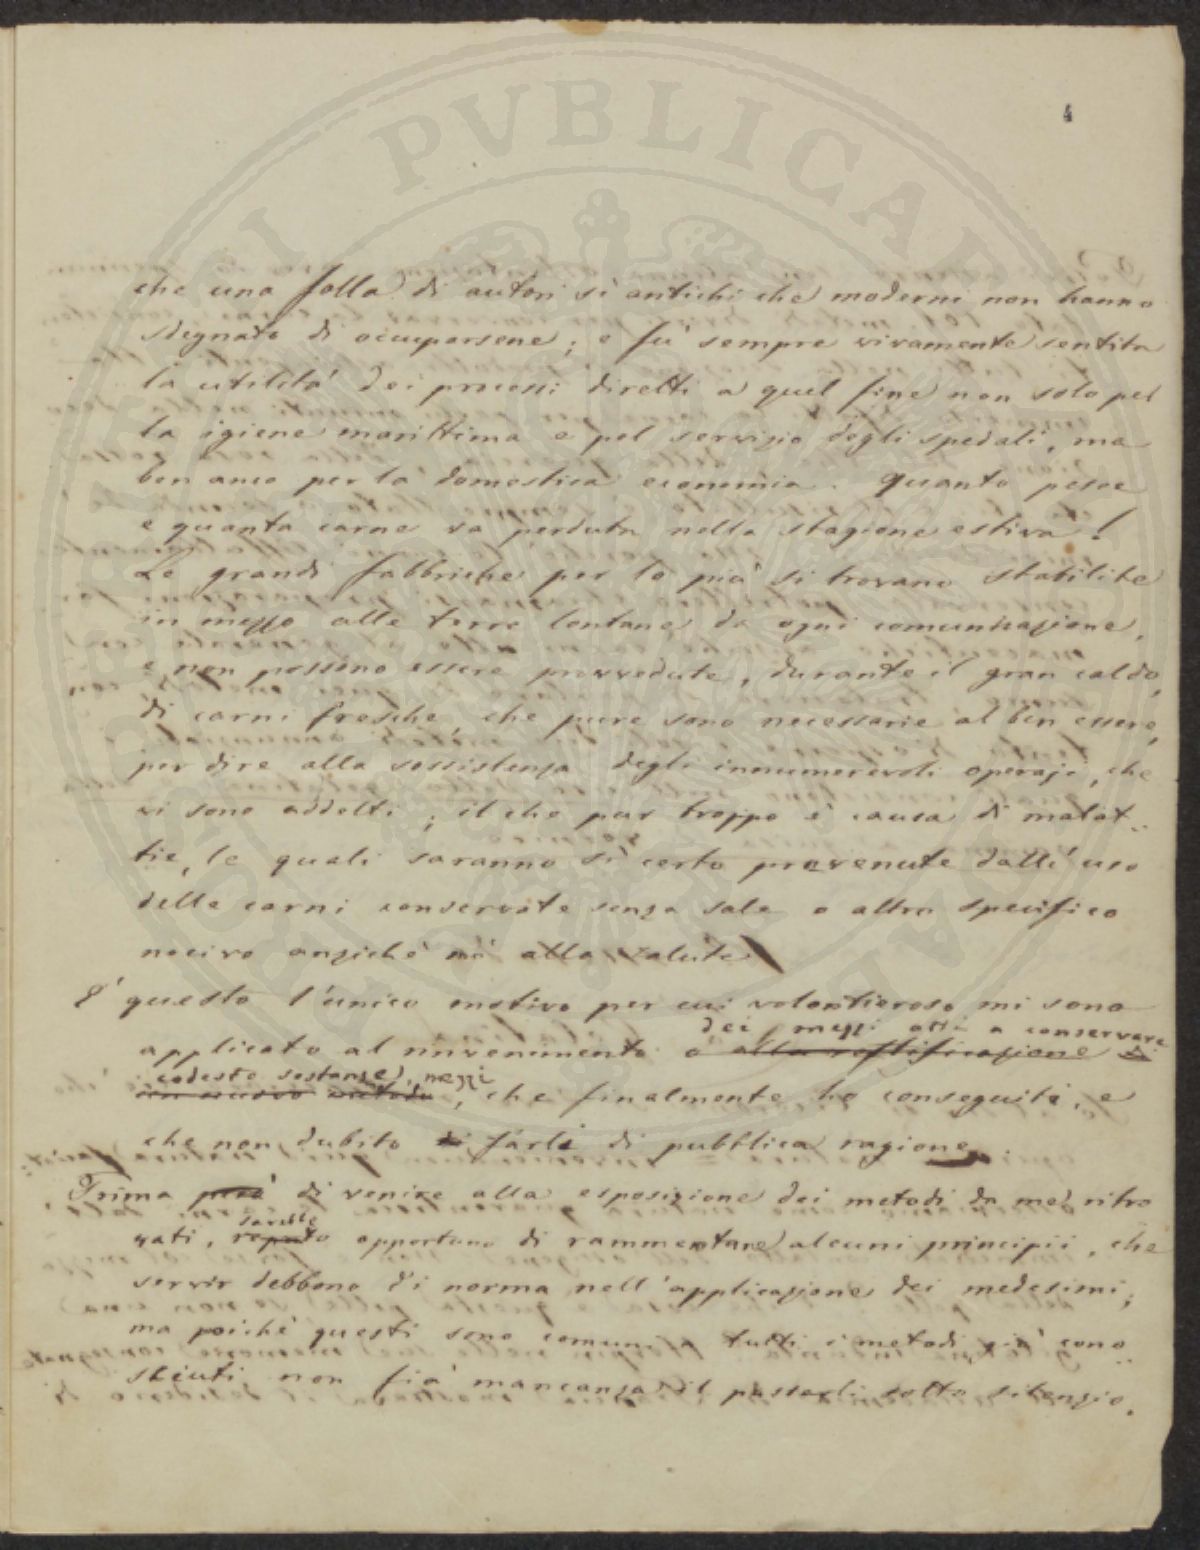 4
che una folla di autori sì antichi che moderni non hanno
sdegnato di occuparsene; e fù sempre vivamente sentita
la utilità dei processi diretti a quel fine non solo pel
la igiene marittima e pel servizio degli spedali, ma
ben anco per la domestica economia. Quanto pesce
e quanta carne va perduta nella stagione estiva!
Le grandi fabbriche per lo più si trovano stabilite
in mezzo alle terre lontane da ogni comunicazione,
e non possono essere provvedute, durante il gran caldo,
di carni fresche, che pure sono necessarie al ben essere,
per dire alla sossistenza degli innumerevoli operaji, che
vi sono addetti; il che pur troppo è causa di malat-
tie, le quali saranno sì certo prevenute dall'uso
delle carni conservate senza sale o altro specifico
nocivo anzichè nò alla salute
E' questo l'unico motivo per cui volontieroso mi sono
dei mezzi atti a conservare
applicato al rinvenimento o alla rettificazione di
codeste sostanze, mezzi
un nuovo metodo, che finalmente ho conseguiti, e
che non dubito di farli di pubblica ragione.
Prima però di venire alla esposizione dei metodi da me ritro
sarebbe
vati, reputo opportuno di rammentare alcuni principii, che
servir debbono di norma nell'applicazione dei medesimi;
ma poichè questi sono comuni a tutti i metodi già cono
sciuti non fia mancanza il passarli sotto silenzio.
PVBLICAE